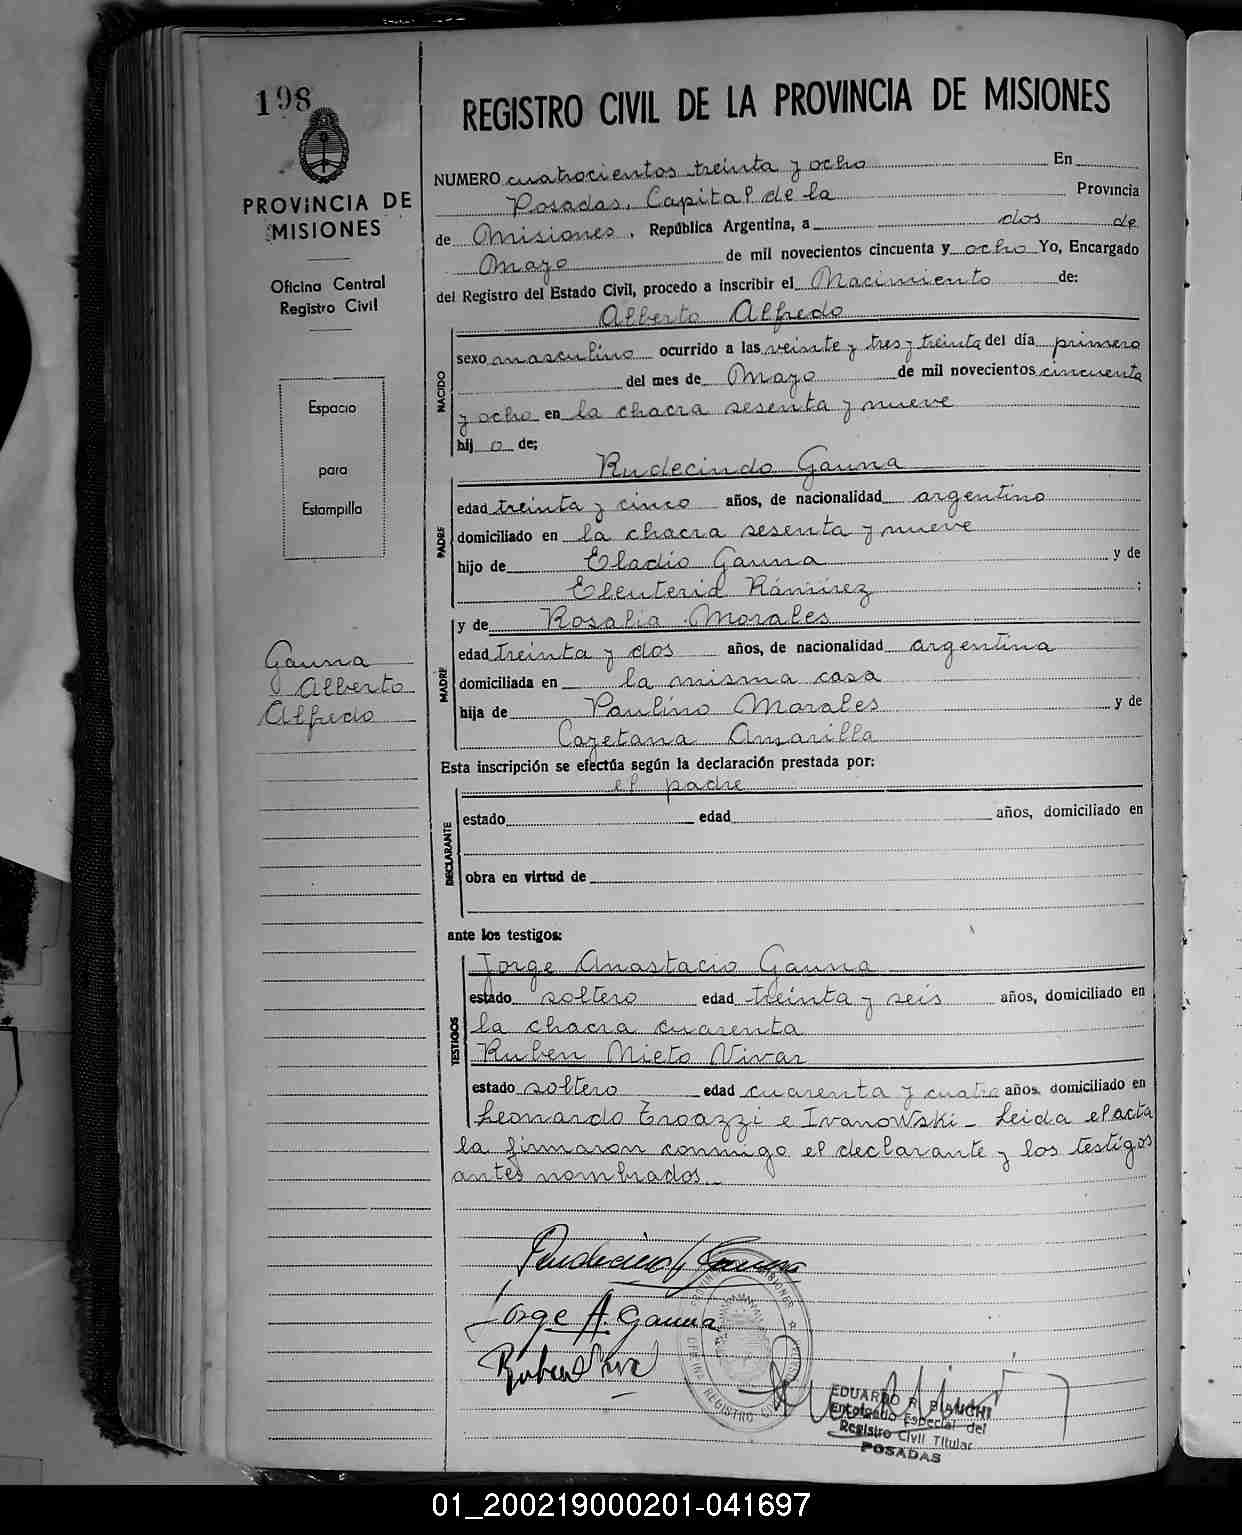 198
PROVINCIA DE
MISIONES
Oficina Central
Registro Civil
Espacio
para
Estampilla
Gauna
Alberto
Alfredo
REGISTRO CIVIL DE LA PROVINCIA DE MISIONES
NUMERO cuatrocientos treinta y ocho En
Posadas, Capital de la Provincia
de Misiones, República Argentina, a dos de
Mayo de mil novecientos cincuenta y ocho Yo, Encargado
del Registro del Estado Civil, procedo a inscribir el Nacimiento de:
Alberto Alfredo
NACIDO
sexo masculino ocurrido a las veinte y tres y treinta del día primero
del mes de Mayo de mil novecientos cincuenta
y ocho en la chacra sesenta y nueve
hijo de;
Rudecindo Gauna
PADRE
edad treinta y cinco años, de nacionalidad argentino
domiciliado en la chacra sesenta y nueve
hijo de Eladio Gauna y de
Eleuteria Rámirez ;
y de Rosalia Morales
MADRE
edad treinta y dos años, de nacionalidad argentina
domiciliada en la misma casa
hija de Paulino Morales y de
Cayetana Amarilla
Esta inscripción se efectúa según la declaración prestada por:
el padre
DECLARANTE
estado edad años, domiciliado en
obra en virtud de
ante los testigos:
Jorge Anastacio Gauna
TESTIGOS
estado soltero edad treinta y seis años, domiciliado en
la chacra cuarenta
Ruben Nieto Vivar
estado soltero edad cuarenta y cuatro años, domiciliado en
Leonardo Troazzi e Ivanowski - Leida el acta
la firmaron conmigo el declarante y los testigos
antes nombrados.-
Rudecindo Gauna
Jorge A. Gauna
EDUARDO R. BIANCHI
Encargado Especial del
Registro Civil Titular
POSADAS
01_200219000201-041697